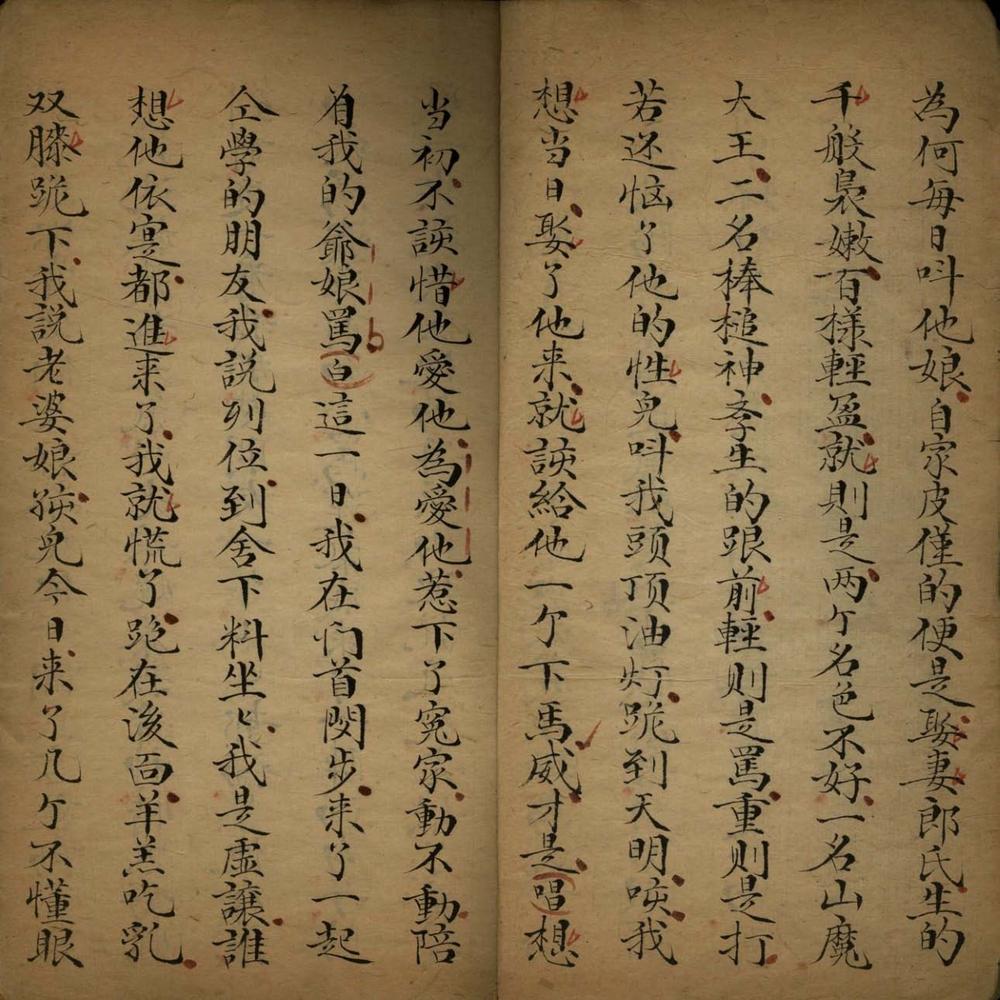 為何每日叫他娘自家皮僅的便是娶妻郎氏生的
千般裊嫩百樣輕盈就則是两个名色不好一名山魔
大王二名棒槌神李生的跟前輕則是罵重則是打
若还恼了他的性兒叫我頭頂油灯跪到天明唉我
想当日娶了他来就該給他一个下馬威才是唱想
当初不該惜他愛他為愛他惹下了寃家動不動陪
着我的爺娘罵白這一日我在门首閔步来了一起
仝學的朋友我説列位到舍下料坐匕我是虚讓誰
想他依寔都進来了我就慌了跪在後面羊羔吃乳
双膝跪下我説老婆娘孩兒今日来了几个不懂眼